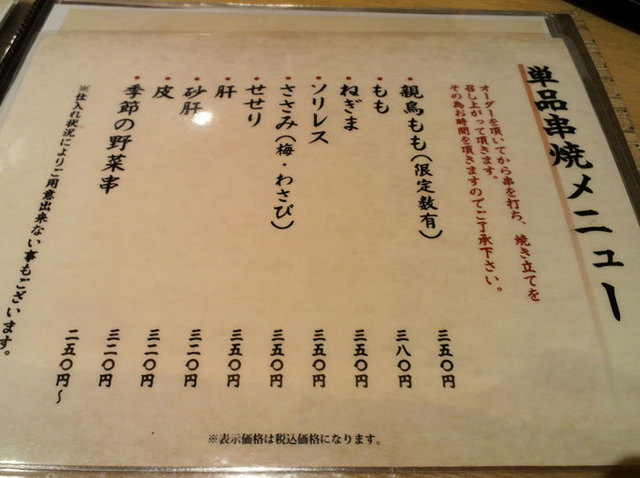 単品串焼メニュー
オーダーを頂いてから串を打ち、焼き立てを
召し上がって頂きます。
その為お時間を頂きますのでご了承下さい。
・親鳥もも(限定数有) 三五〇円
・もも 三八〇円
・ねぎま 三五〇円
・ソリレス 三五〇円
・ささみ(梅・わさび) 三五〇円
・せせり 三五〇円
・肝 三二〇円
・砂肝 三二〇円
・皮 三二〇円
・季節の野菜串 二五〇円〜
※仕入れ状況によりご用意出来ない事もございます。
※表示価格は税込価格になります。